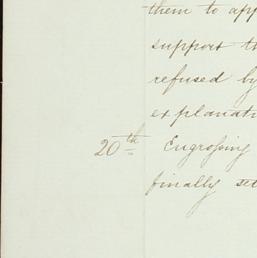 them to app
support th
refused by
explanati
20th Engrossing
finally set